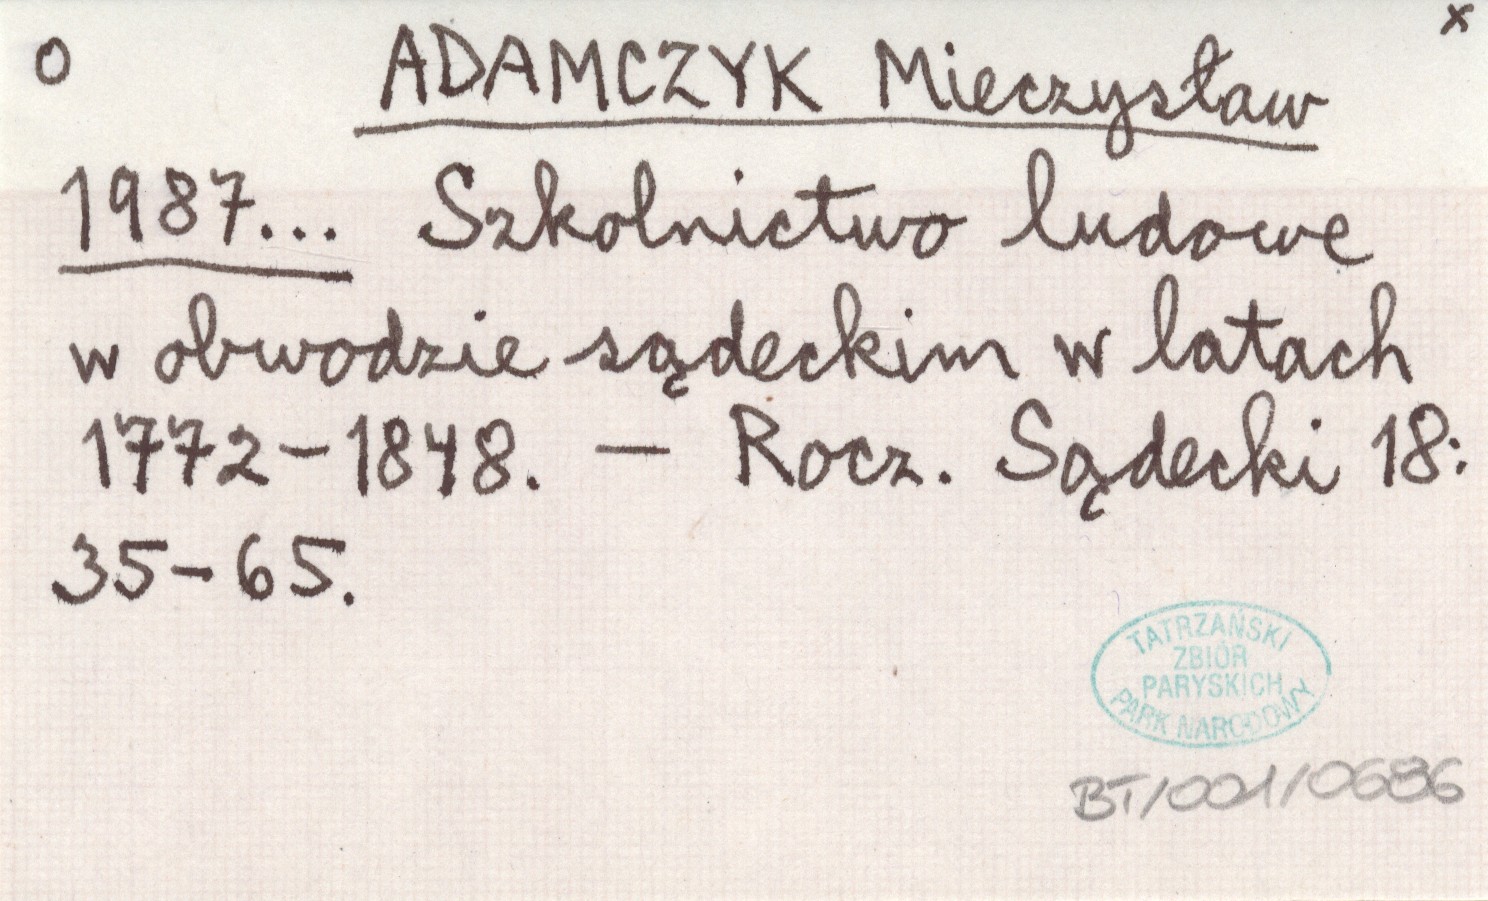 O ADAMCZYK Mieczysław x
1987... Szkolnictwo ludowe
w obwodzie sądeckim w latach
1772-1848. — Rocz. Sądecki 18:
35-65.
TATRZAŃSKI
ZBIÓR
PARYSKICH
PARK NARODOWY
BT/001/0686